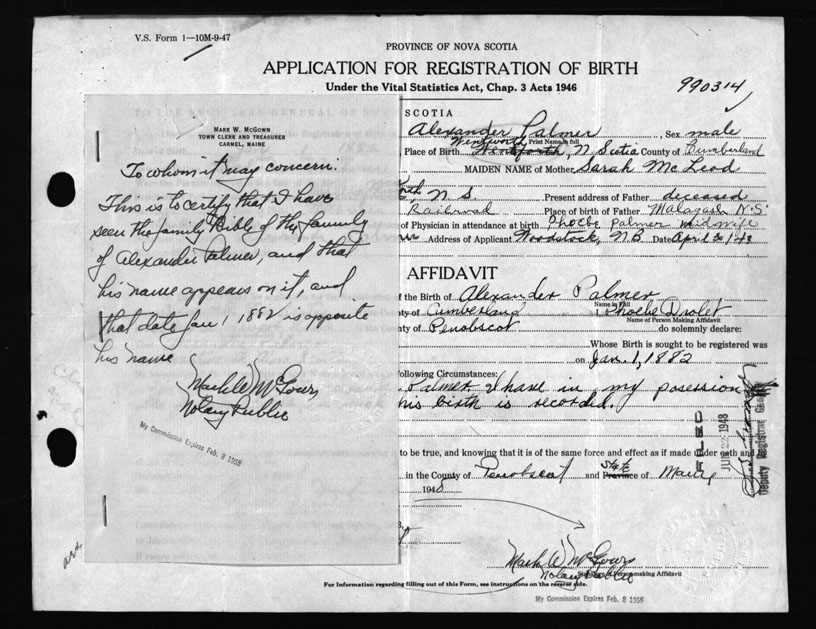 V.S. Form 1—10M-9-47
PROVINCE OF NOVA SCOTIA
APPLICATION FOR REGISTRATION OF BIRTH
Under the Vital Statistics Act, Chap. 3 Acts 1946
990314
MARK W. McGOWN
TOWN CLERK AND TREASURER
CARMEL, MAINE
To whom it may concern.
This is to certify that I have
seen the family Bible of the family
of Alexander Palmer, and that
his name appears on it, and
that date Jan 1 1882 is opposite
his name
Mark W McGown
Notary Public
My Commission Expires Feb. 8 1958
SCOTIA
Alexander Palmer, Sex male
Print Name in full
Wentworth
Place of Birth Wentworth, N. Scotia County of Cumberland
MAIDEN NAME of Mother Sarah McLeod
N S Present address of Father deceased
Railroad Place of birth of Father Malagash N.S.
of Physician in attendance at birth Phoebe Palmer midwife
Address of Applicant Woodstock, N.B. Date April 3/48
AFFIDAVIT
f the Birth of Alexander Palmer
Name in Full
ty of Cumberland I, Phoebe Drolet
Name of Person Making Affidavit
nty of Penobscot do solemnly declare:
Whose Birth is sought to be registered was
on Jan. 1, 1882
following Circumstances:
Palmer I have in my posession
his birth is recorded.
to be true, and knowing that it is of the same force and effect as if made under oath and
State
in the County of Penobscot and Province of Maine
1948
FILED
JUN 22 1948
Deputy Registrar General
Mark W McGown
Notary Public
making Affidavit
For Information regarding filling out of this Form, see instructions on the reverse side.
My Commission Expires Feb. 8 1958